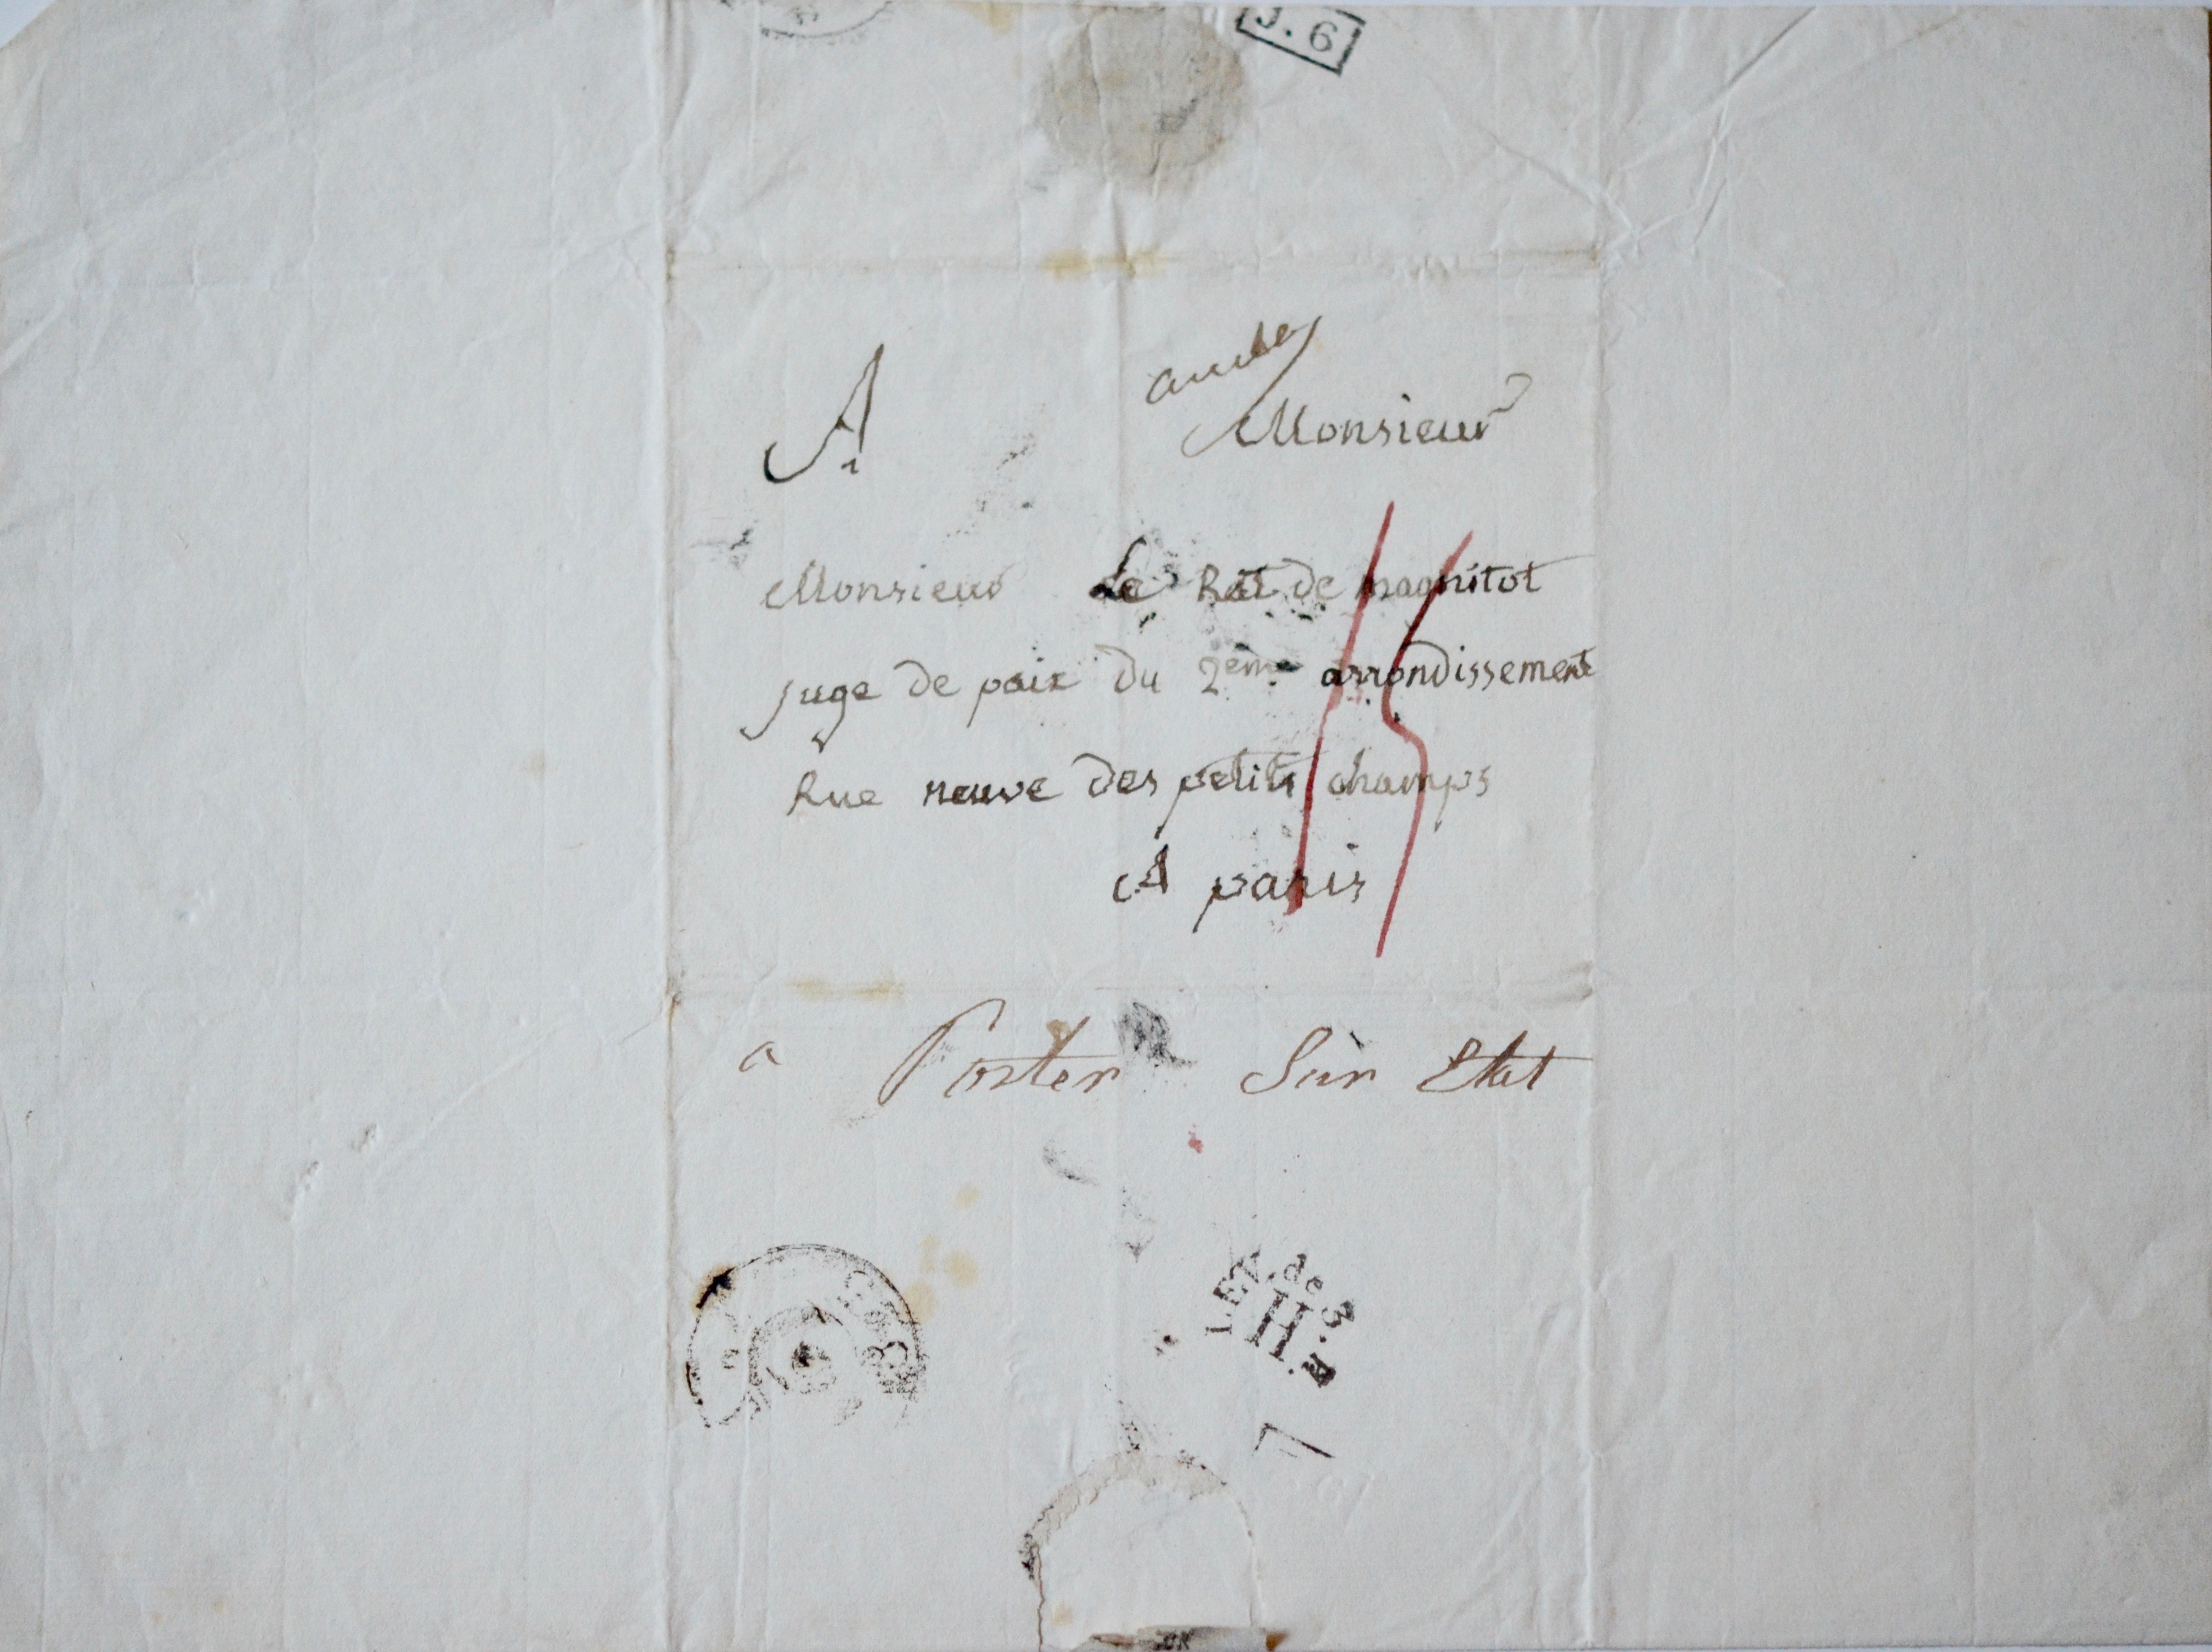 J. 6
A
Monsieur
Monsieur Le Rat de magnitot
juge de paix du 2eme arrondissement
Rue neuve des petits champs
A paris
15
a Porter Sur Etat
LEV. de 3. H